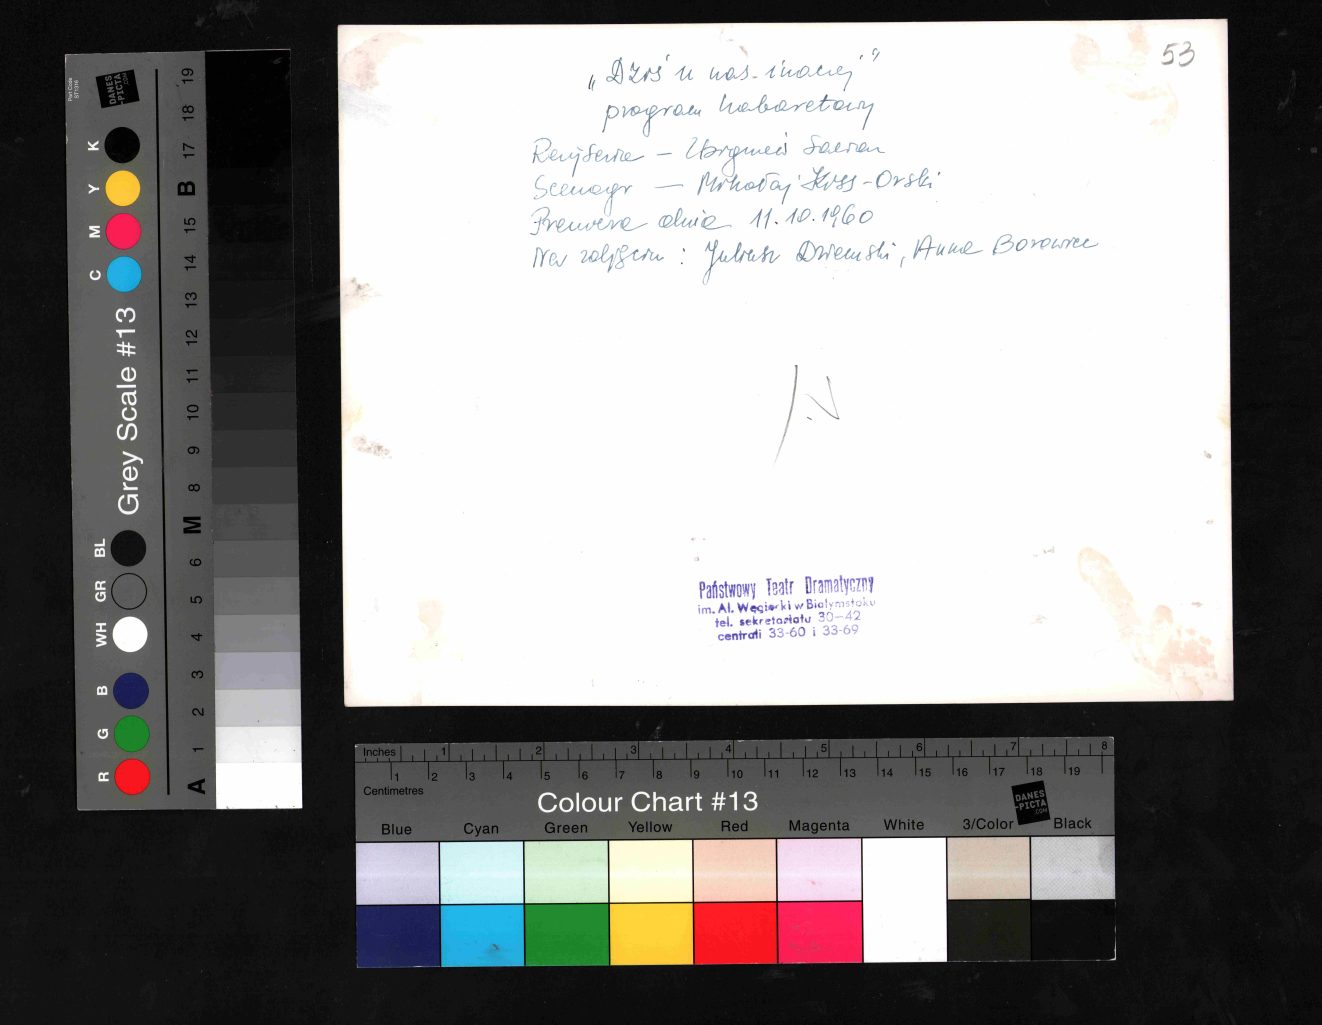 53
„Dziś u nas inaczej"
program kabaretowy
Reżyseria — Zbigniew
Scenogr — Mikołaj Kiss-Orski
Premiera dnia 11.10.1960
Na zdjęciu: Juliusz Dziemski, Anna Borowiec
Państwowy Teatr Dramatyczny
im. Al. Węgierki w Białymstoku
tel. sekretariatu 30-42
centrali 33-60 i 33-69
Part Code
ST1316
DANES
-PICTA
.COM
Grey Scale #13
K
Y
M
C
BL
GR
WH
B
G
R
19
18
17
B
15
14
13
12
11
10
9
8
M
6
5
4
3
2
1
A
Inches 1 2 3 4 5 6 7 8
1 2 3 4 5 6 7 8 9 10 11 12 13 14 15 16 17 18 19
Centimetres
Colour Chart #13
DANES
-PICTA
.COM
Blue Cyan Green Yellow Red Magenta White 3/Color Black